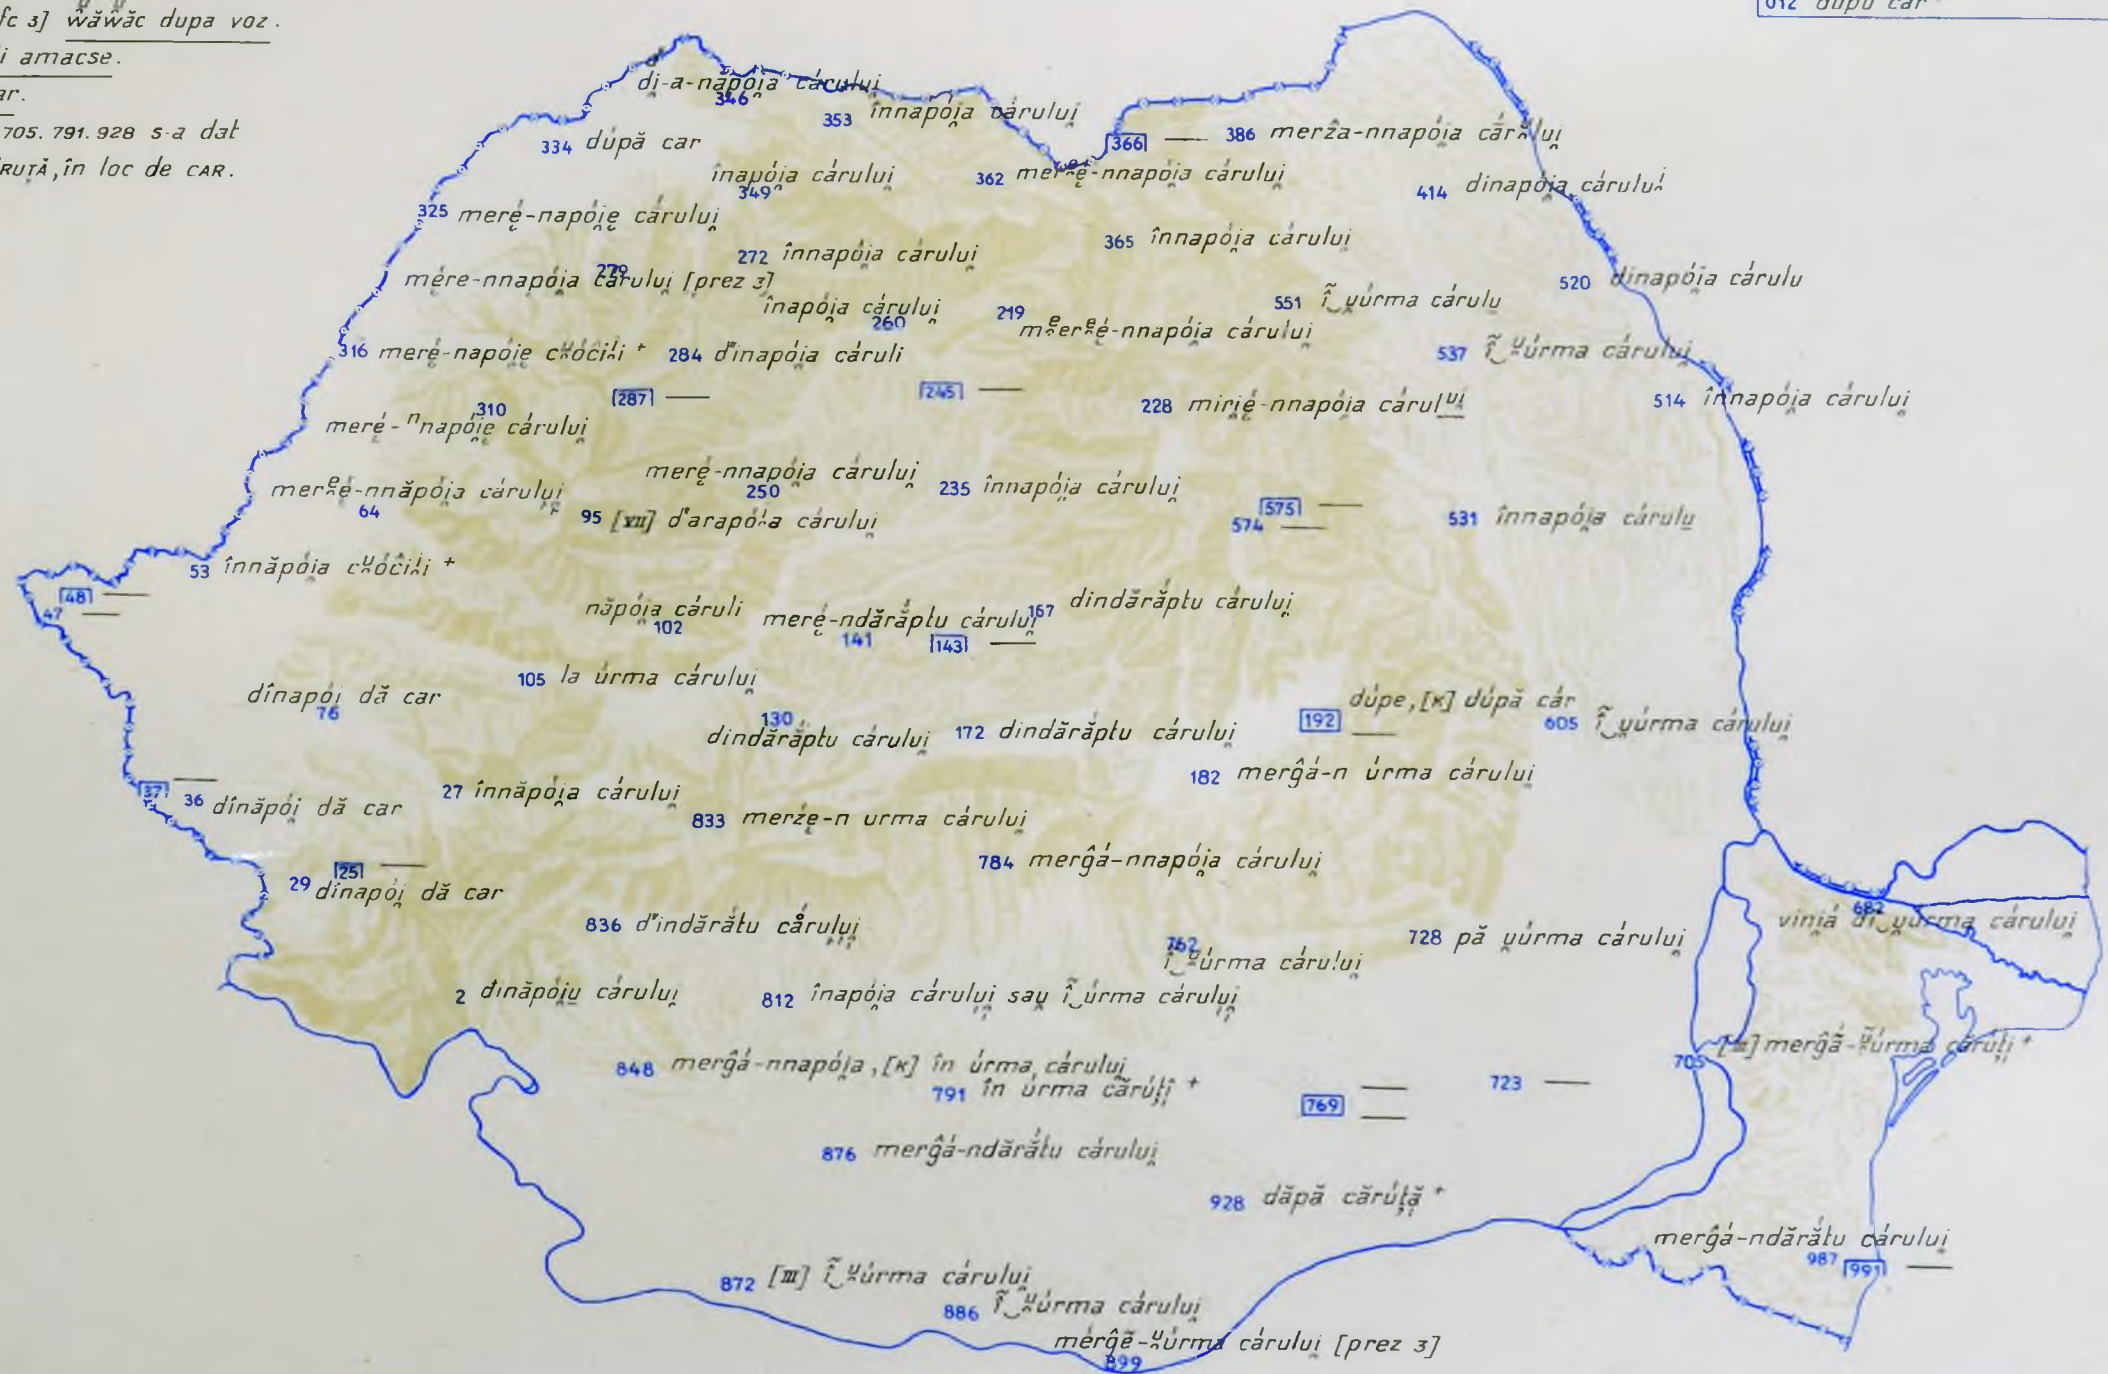 fc 3] w̆ăw̆ăc dupa voz.
i amacse.
ar.
705. 791. 928 s-a dat
RUȚĂ, în loc de CAR.
012 dupu car
di̯-a-năpói̯a cárului̯
346
353 înnapói̯a cárului̯
334 dúpă car
366 —
386 merẑa-nnapói̯a cắrắlui̯
înapói̯a cárului̯
349
362 merᵉé̯-nnapói̯a cárului̯
414 dinapói̯a cárului
325 meré̯-napói̯e̯ cárului̯
272 înnapói̯a cárului̯
365 înnapói̯a cárului̯
279
mére-nnapói̯a cárului̯ [prez 3]
520 dinapói̯a cárulu
înapói̯a cárului̯
260
219
mᵉerᵉé̯-nnapói̯a cárului̯
551 ĩ‿u̯úrma cárulu
316 meré̯-napói̯e̯ cᵘóĉili +
284 d'inapói̯a cáruli
537 ĩ‿ᵘúrma cárului̯
287 —
245 —
228 mirié̯-nnapói̯a cárulᵘⁱ
514 înnapói̯a cárului̯
310
meré-ⁿnapói̯e̯ cárului̯
merᵉé̯-nnăpói̯a cárului̯
64
meré̯-nnapói̯a cárului̯
250
235 înnapói̯a cárului̯
95 [VII] d'arapóⁱa cárului̯
575 —
574 —
531 înnapói̯a cárulu
53 înnăpói̯a cᵘóĉili +
48 —
47 —
năpói̯a cáruli
102
meré̯-ndărắptu cárului̯
141
167 dindărắptu cárului̯
143 —
105 la úrma cárului̯
dînapói̯ dă car
76
130
dindărắptu cárului̯
172 dindărắptu cárului̯
192 —
dúpe, [κ] dúpă cár
605 ĩ‿u̯úrma cárului̯
182 merĝá-n úrma cárului̯
37 —
36 dînăpói̯ dă car
27 înnăpói̯a cárului̯
833 merẑé̯-n urma cárului̯
784 merĝá-nnapói̯a cárului̯
25 —
29 dînapói̯ dă car
836 d'indărátu cårului̯
682
vini̯á di‿u̯úrma cárului̯
762
ĩ‿ᵘúrma cárului̯
728 pă u̯úrma cárului̯
2 dinăpói̯u cárului̯
812 înapói̯a cárului̯ sau̯ ĩ‿úrma cárului̯
848 merĝá-nnapói̯a, [κ] în úrma cárului̯
705 [III] merĝắ-ᵘúrma cărúți +
791 în úrma cărúți +
769 —
—
723 —
876 merĝá-ndărắtu cárului̯
928 dăpă cărúță +
merĝá-ndărắtu cárului̯
987
991 —
872 [III] ĩ‿ᵘúrma cárului̯
886 ĩ‿ᵘúrma cárului̯
mérĝẽ-ᵘúrma cárului̯ [prez 3]
899